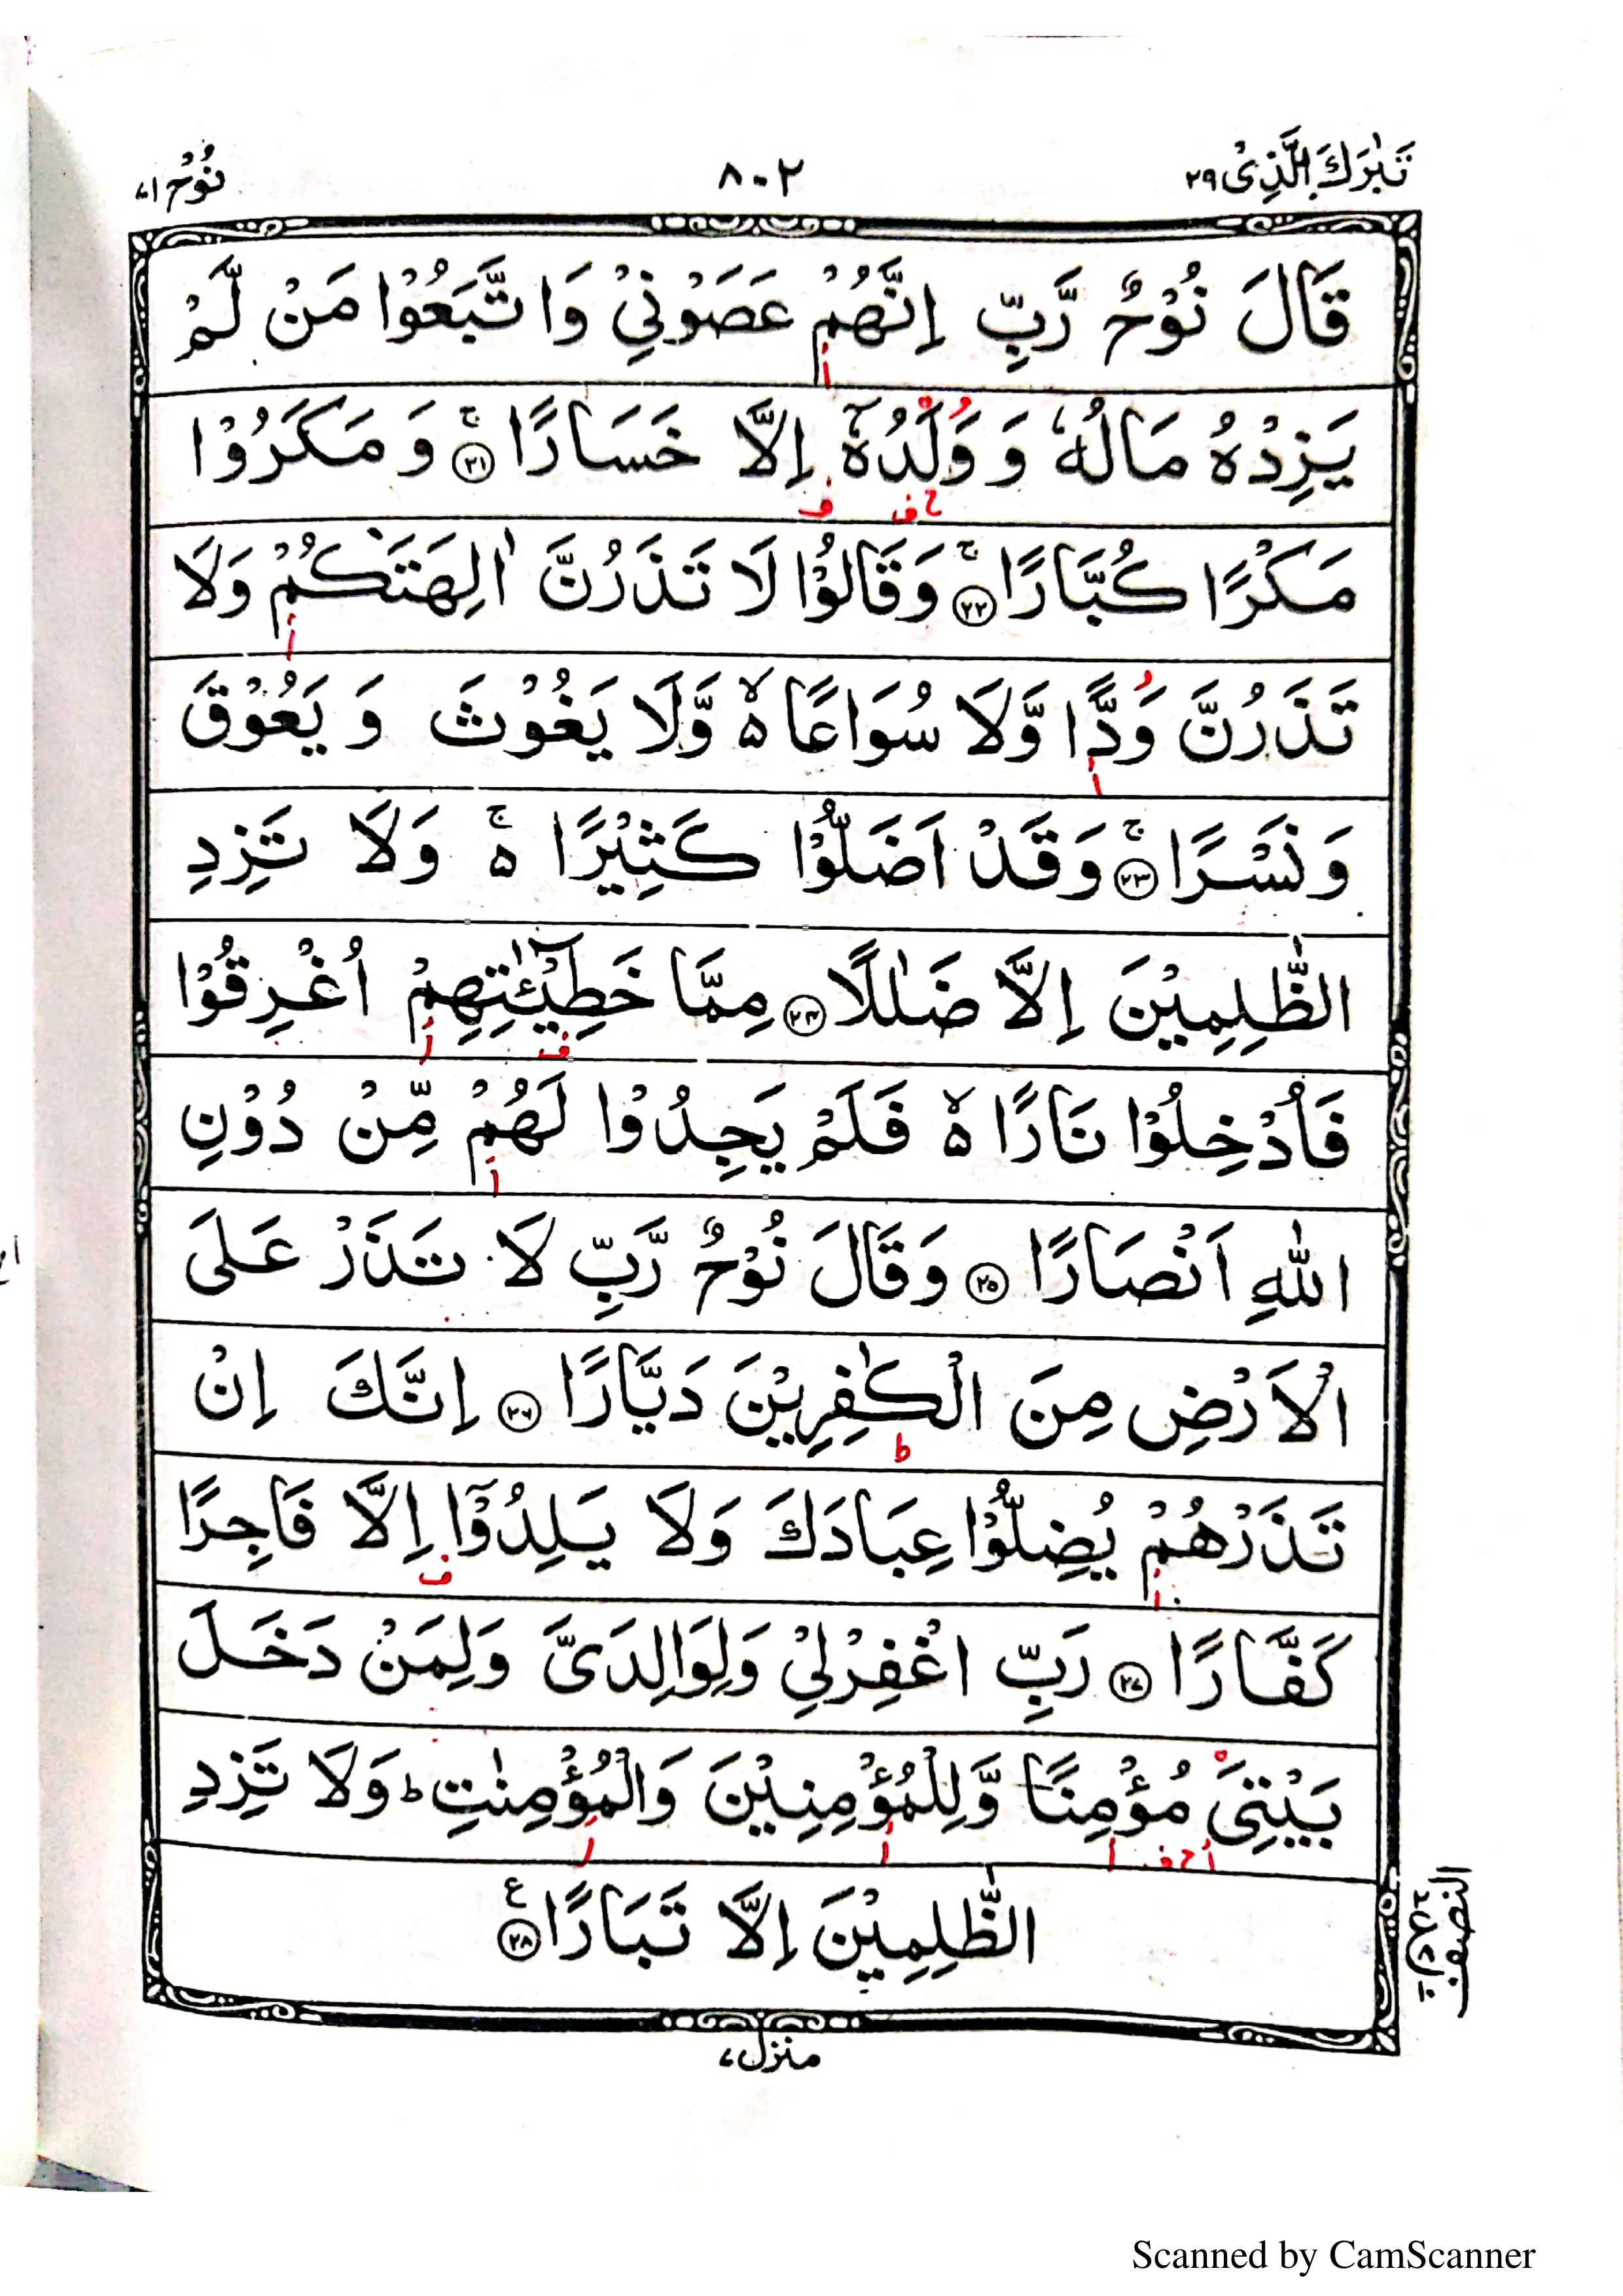 تَبٰرَكَ الَّذِىْ ٢٩
٨٠٢
نُوْح ٧١
قَالَ نُوْحٌ رَّبِّ اِنَّهُمْ عَصَوْنِىْ وَاتَّبَعُوْا مَنْ لَّمْ
يَزِدْهُ مَالُهٗ وَوَلَدُهٗۤ اِلَّا خَسَارًا ۚ ﴿٢١﴾ وَمَكَرُوْا
مَكْرًا كُبَّارًا ۚ ﴿٢٢﴾ وَقَالُوْا لَا تَذَرُنَّ اٰلِهَتَكُمْ وَلَا
تَذَرُنَّ وَدًّا وَّلَا سُوَاعًا ۙ٥ وَّلَا يَغُوْثَ وَيَعُوْقَ
وَنَسْرًا ۚ ﴿٢٣﴾ وَقَدْ اَضَلُّوْا كَثِيْرًا ۚ٥ وَلَا تَزِدِ
الظّٰلِمِيْنَ اِلَّا ضَلٰلًا ﴿٢٤﴾ مِمَّا خَطِيْٓـٰٔتِهِمْ اُغْرِقُوْا
فَاُدْخِلُوْا نَارًا ۙ٥ فَلَمْ يَجِدُوْا لَهُمْ مِّنْ دُوْنِ
اللّٰهِ اَنْصَارًا ﴿٢٥﴾ وَقَالَ نُوْحٌ رَّبِّ لَا تَذَرْ عَلَى
الْاَرْضِ مِنَ الْكٰفِرِيْنَ دَيَّارًا ﴿٢٦﴾ اِنَّكَ اِنْ
تَذَرْهُمْ يُضِلُّوْا عِبَادَكَ وَلَا يَلِدُوْۤا اِلَّا فَاجِرًا
كَفَّارًا ﴿٢٧﴾ رَبِّ اغْفِرْلِىْ وَلِوَالِدَىَّ وَلِمَنْ دَخَلَ
بَيْتِىَ مُؤْمِنًا وَّلِلْمُؤْمِنِيْنَ وَالْمُؤْمِنٰتِ ؕ وَلَا تَزِدِ
الظّٰلِمِيْنَ اِلَّا تَبَارًا ۧ ﴿٢٨﴾
النصف
منزل ٧
Scanned by CamScanner